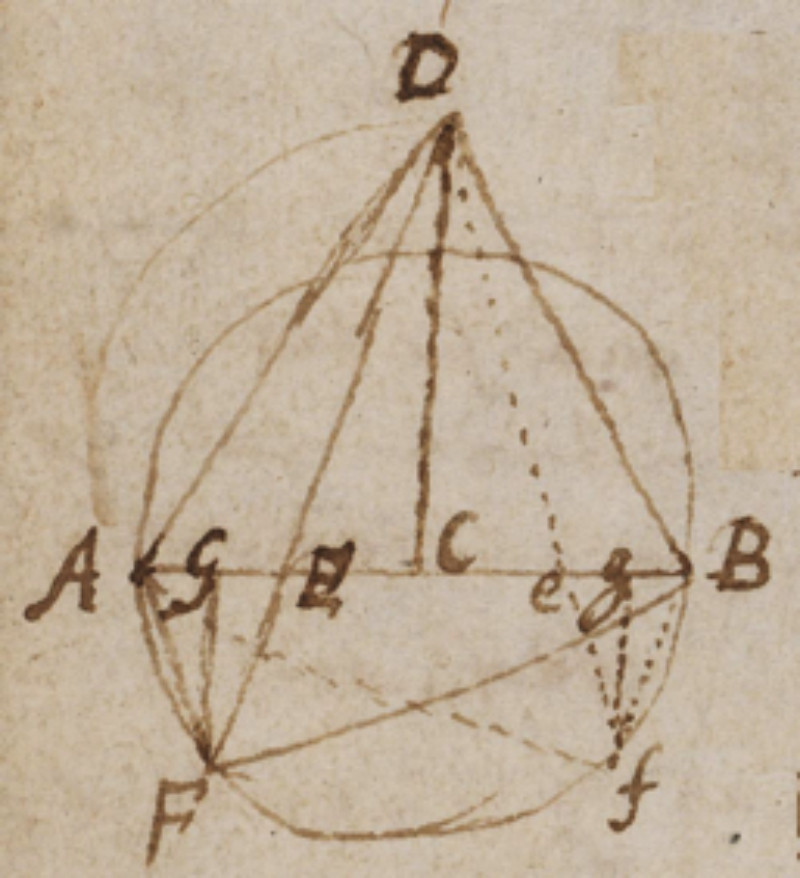 D
A G E C e g B
F f